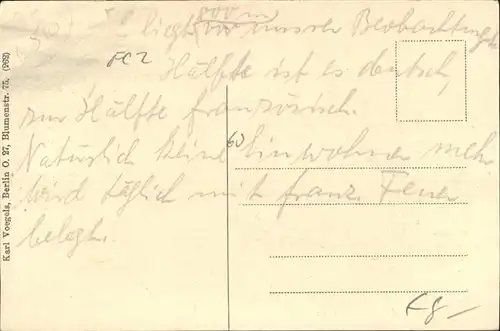 liegt vor unsrer Beobachtungs
Hälfte ist es deutsch,
zur Hälfte französisch.
Natürlich keine Einwohner mehr
wird täglich mit franz. Feuer
belegt.
Karl Voegels, Berlin O. 27, Blumenstr. 75. (962)